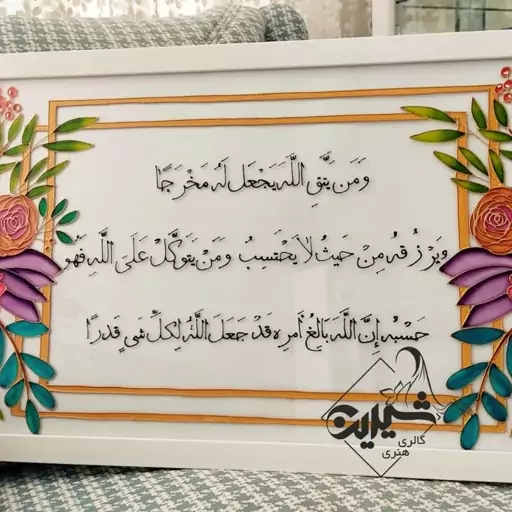 وَمَن يَتَّقِ اللَّهَ يَجْعَل لَهُ مَخْرَجًا
وَيَرْزُقهُ مِنْ حَيثُ لاَ يَحْتَسِبُ وَمَنْ يَتَوَكَّلْ عَلَى اللَّهِ فَهُوَ
حَسْبُهُ إِنَّ اللَّهَ بَالِغُ أَمرِهِ قَدْ جَعَلَ اللَّهُ لِكُلِّ شَیءٍ قَدرًا
گالری
هنری